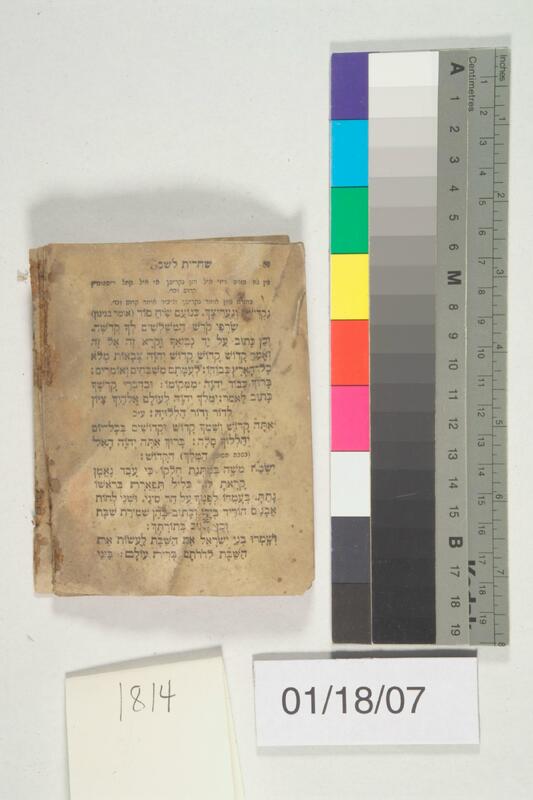 שחרית לשבת
נַקְדִּישָׁךְ וְנַעֲרִיצָךְ. כְּנוֹעַם שִׂיחַ סוֹד
שַׂרְפֵי קֹדֶשׁ הַמְשַׁלְּשִׁים לְךָ קְדֻשָּׁה.
וְכֵן כָּתוּב עַל יַד נְבִיאֶךָ וְקָרָא זֶה אֶל זֶה
וְאָמַר קָדוֹשׁ קָדוֹשׁ קָדוֹשׁ יְהֹוָה צְבָאוֹת מְלֹא
כָל־הָאָרֶץ כְּבוֹדוֹ: לְעֻמָּתָם מְשַׁבְּחִים וְאוֹמְרִים:
בָּרוּךְ כְּבוֹד יְהֹוָה מִמְּקוֹמוֹ: וּבְדִבְרֵי קָדְשְׁךָ
כָּתוּב לֵאמֹר: יִמְלֹךְ יְהֹוָה לְעוֹלָם אֱלֹהַיִךְ צִיּוֹן
לְדוֹר וָדוֹר הַלְלוּיָהּ:
אַתָּה קָדוֹשׁ וְשִׁמְךָ קָדוֹשׁ וּקְדוֹשִׁים בְּכָל־יוֹם
יְהַלְלוּךָ סֶּלָה: בָּרוּךְ אַתָּה יְהֹוָה הָאֵל
הַמֶּלֶךְ) הַקָּדוֹשׁ:
יִשְׂמַח מֹשֶׁה בְּמַתְּנַת חֶלְקוֹ. כִּי עֶבֶד נֶאֱמָן
קָרָאתָ לּוֹ. כְּלִיל תִּפְאֶרֶת בְּרֹאשׁוֹ
נָתַתָּ. בְּעָמְדוֹ לְפָנֶיךָ עַל הַר סִינַי. וּשְׁנֵי לֻחוֹת
אֲבָנִים הוֹרִיד בְּיָדוֹ וְכָתוּב בָּהֶן שְׁמִירַת שַׁבָּת
וְכֵן כָּתוּב בְּתוֹרָתֶךָ:
וְשָׁמְרוּ בְנֵי יִשְׂרָאֵל אֶת הַשַּׁבָּת לַעֲשׂוֹת אֶת
הַשַּׁבָּת לְדֹרֹתָם בְּרִית עוֹלָם: בֵּינִי
Inches
Centimetres
A 1 2 3 4 5 6 M 8 9 10 11 12 13 14 15 B 17 18 19
Kodak
1814
01/18/07